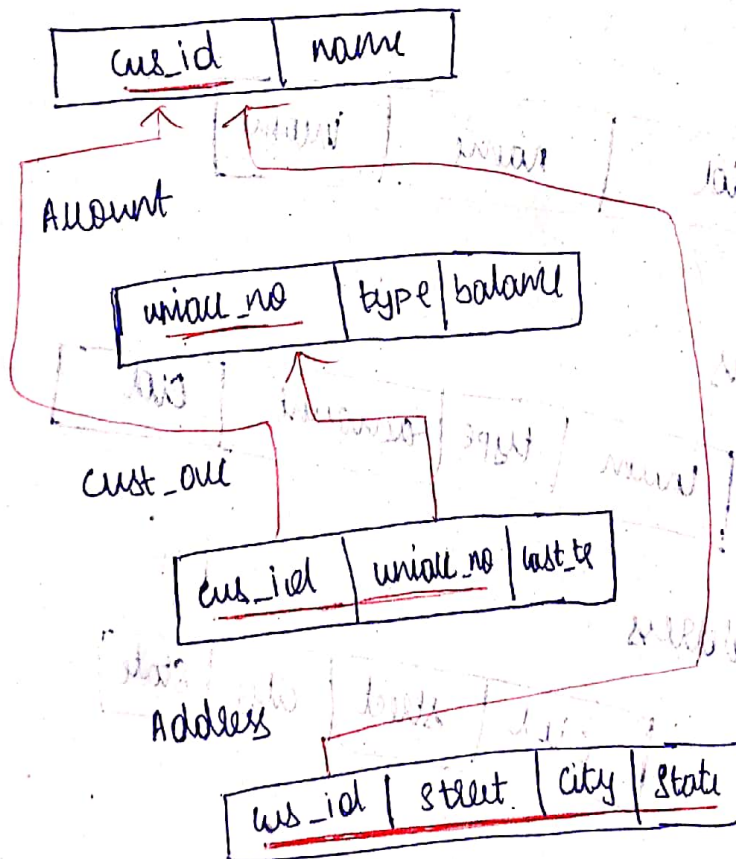 cus_id name
Account
uniacc_no type balance
cust_acc
cus_id uniacc_no last_ts
Address
cus_id street city state